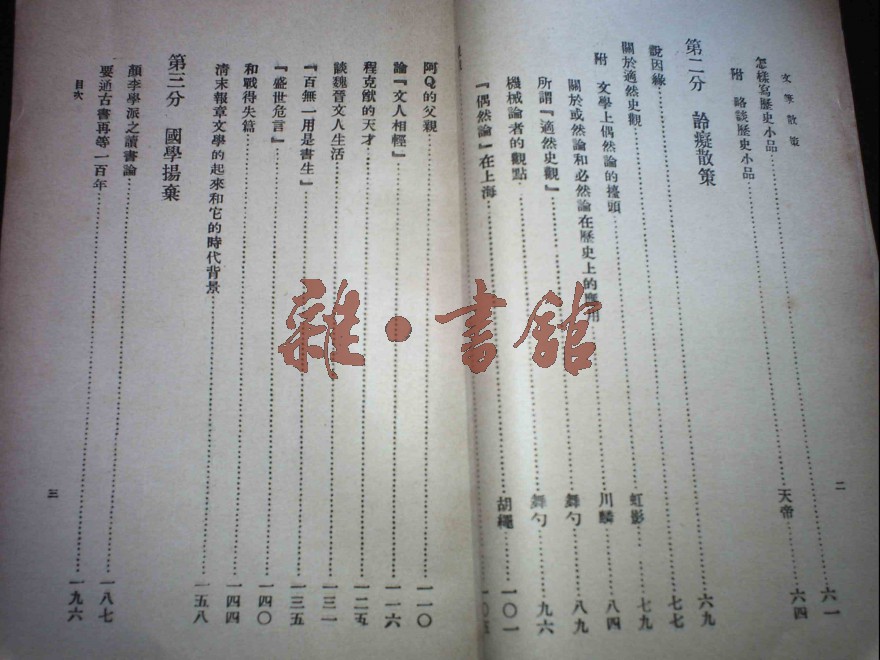 文筆散策
二
怎樣寫歷史小品……六一
附 略談歷史小品……天帝……六四
第二分 詅癡散策……六九
說因緣……七七
關於適然史觀……虹影……七九
附 文學上偶然論的擡頭……川麟……八四
關於或然論和必然論在歷史上的應用……舞勺……八九
所謂『適然史觀』……舞勺……九六
機械論者的觀點……胡繩……一〇一
『偶然論』在上海……一〇五
阿Q的父親……一一〇
論『文人相輕』……一一六
程克猷的天才……一二五
談魏晉文人生活……一三一
『百無一用是書生』……一三五
『盛世危言』……一四〇
和戰得失篇……一四四
清末報章文學的起來和它的時代背景……一五八
第三分 國學揚棄
顏李學派之讀書論……一八七
要通古書再等一百年……一九六
目次
三
雜·書館